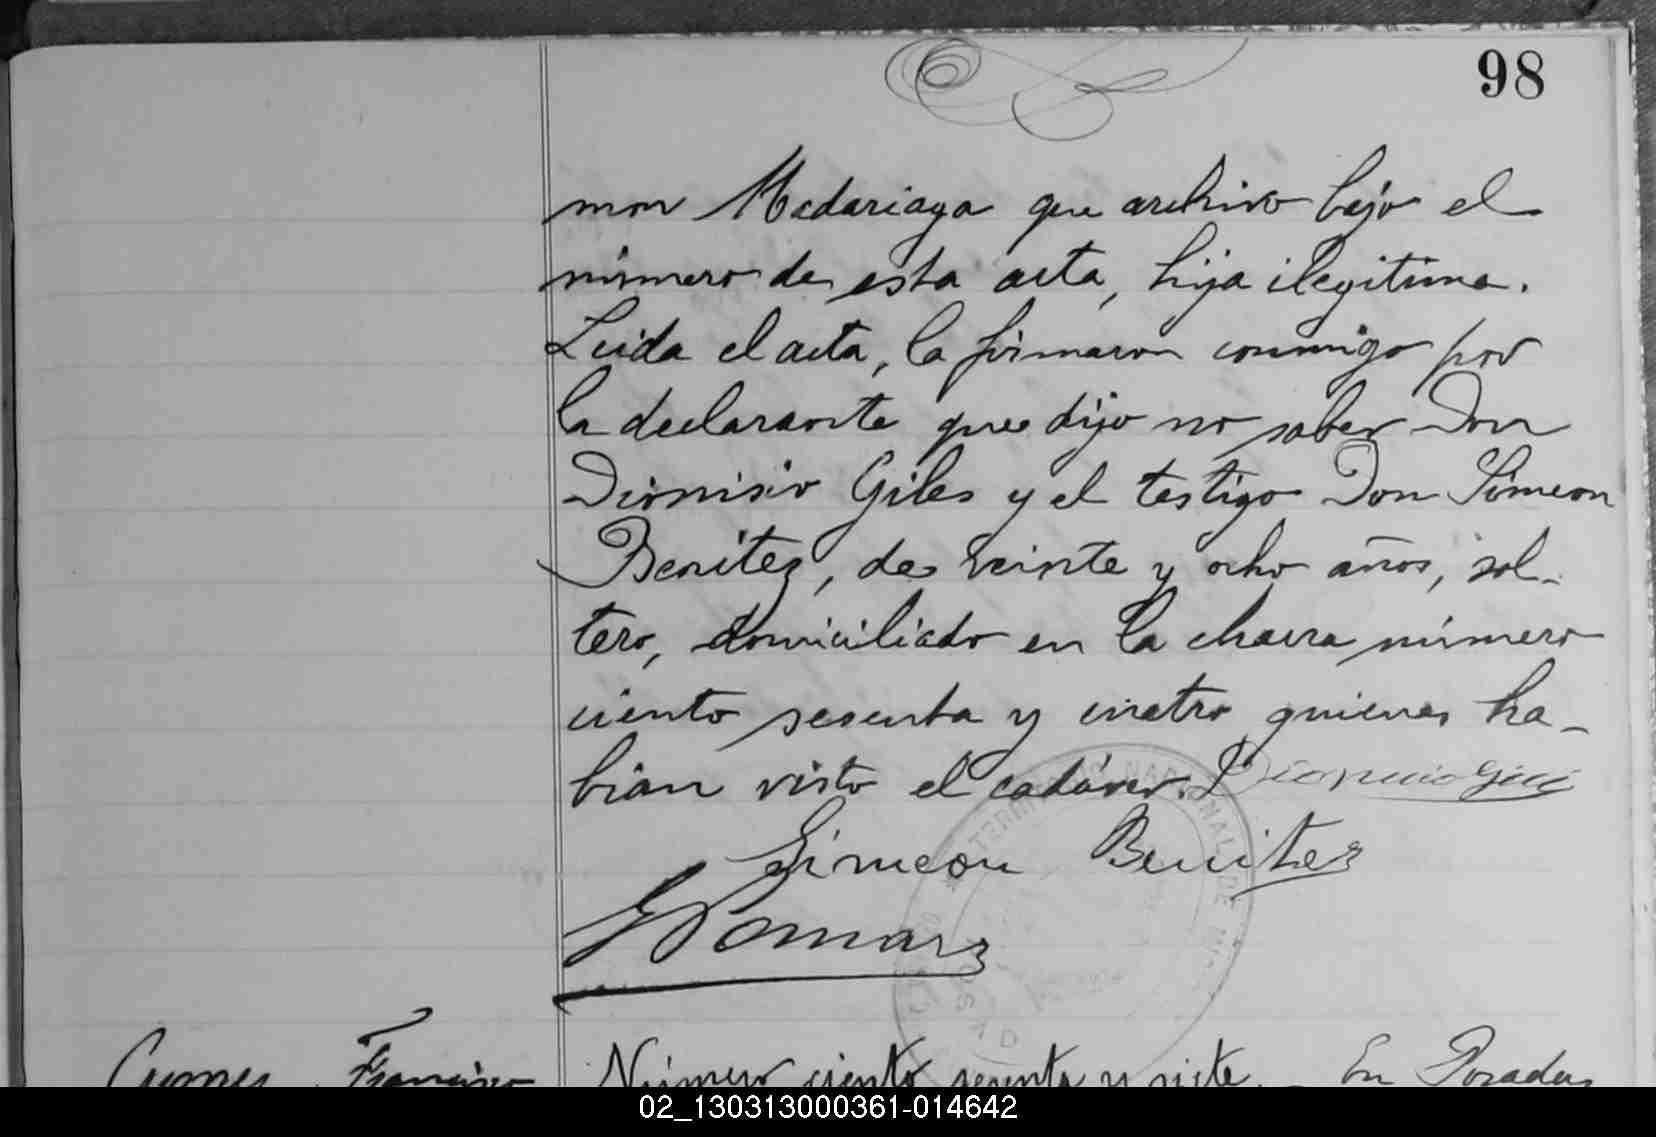 98
mon Madariaga que archivo bajo el
número de esta acta, hija ilegitima.
Leida el acta, la firmaron conmigo por
la declarante que dijo no saber Don
Dionisio Giles y el testigo Don Simeon
Benitez, de veinte y ocho años, sol-
tero, domiciliado en la chacra número
ciento sesenta y cuatro quienes ha-
bian visto el cadáver. Dionicio Gile
Simeon Benitez
TERRITORIO NACIONAL DE
Gomez Francisco
Número ciento sesenta y siete. En Posadas
02_130313000361-014642